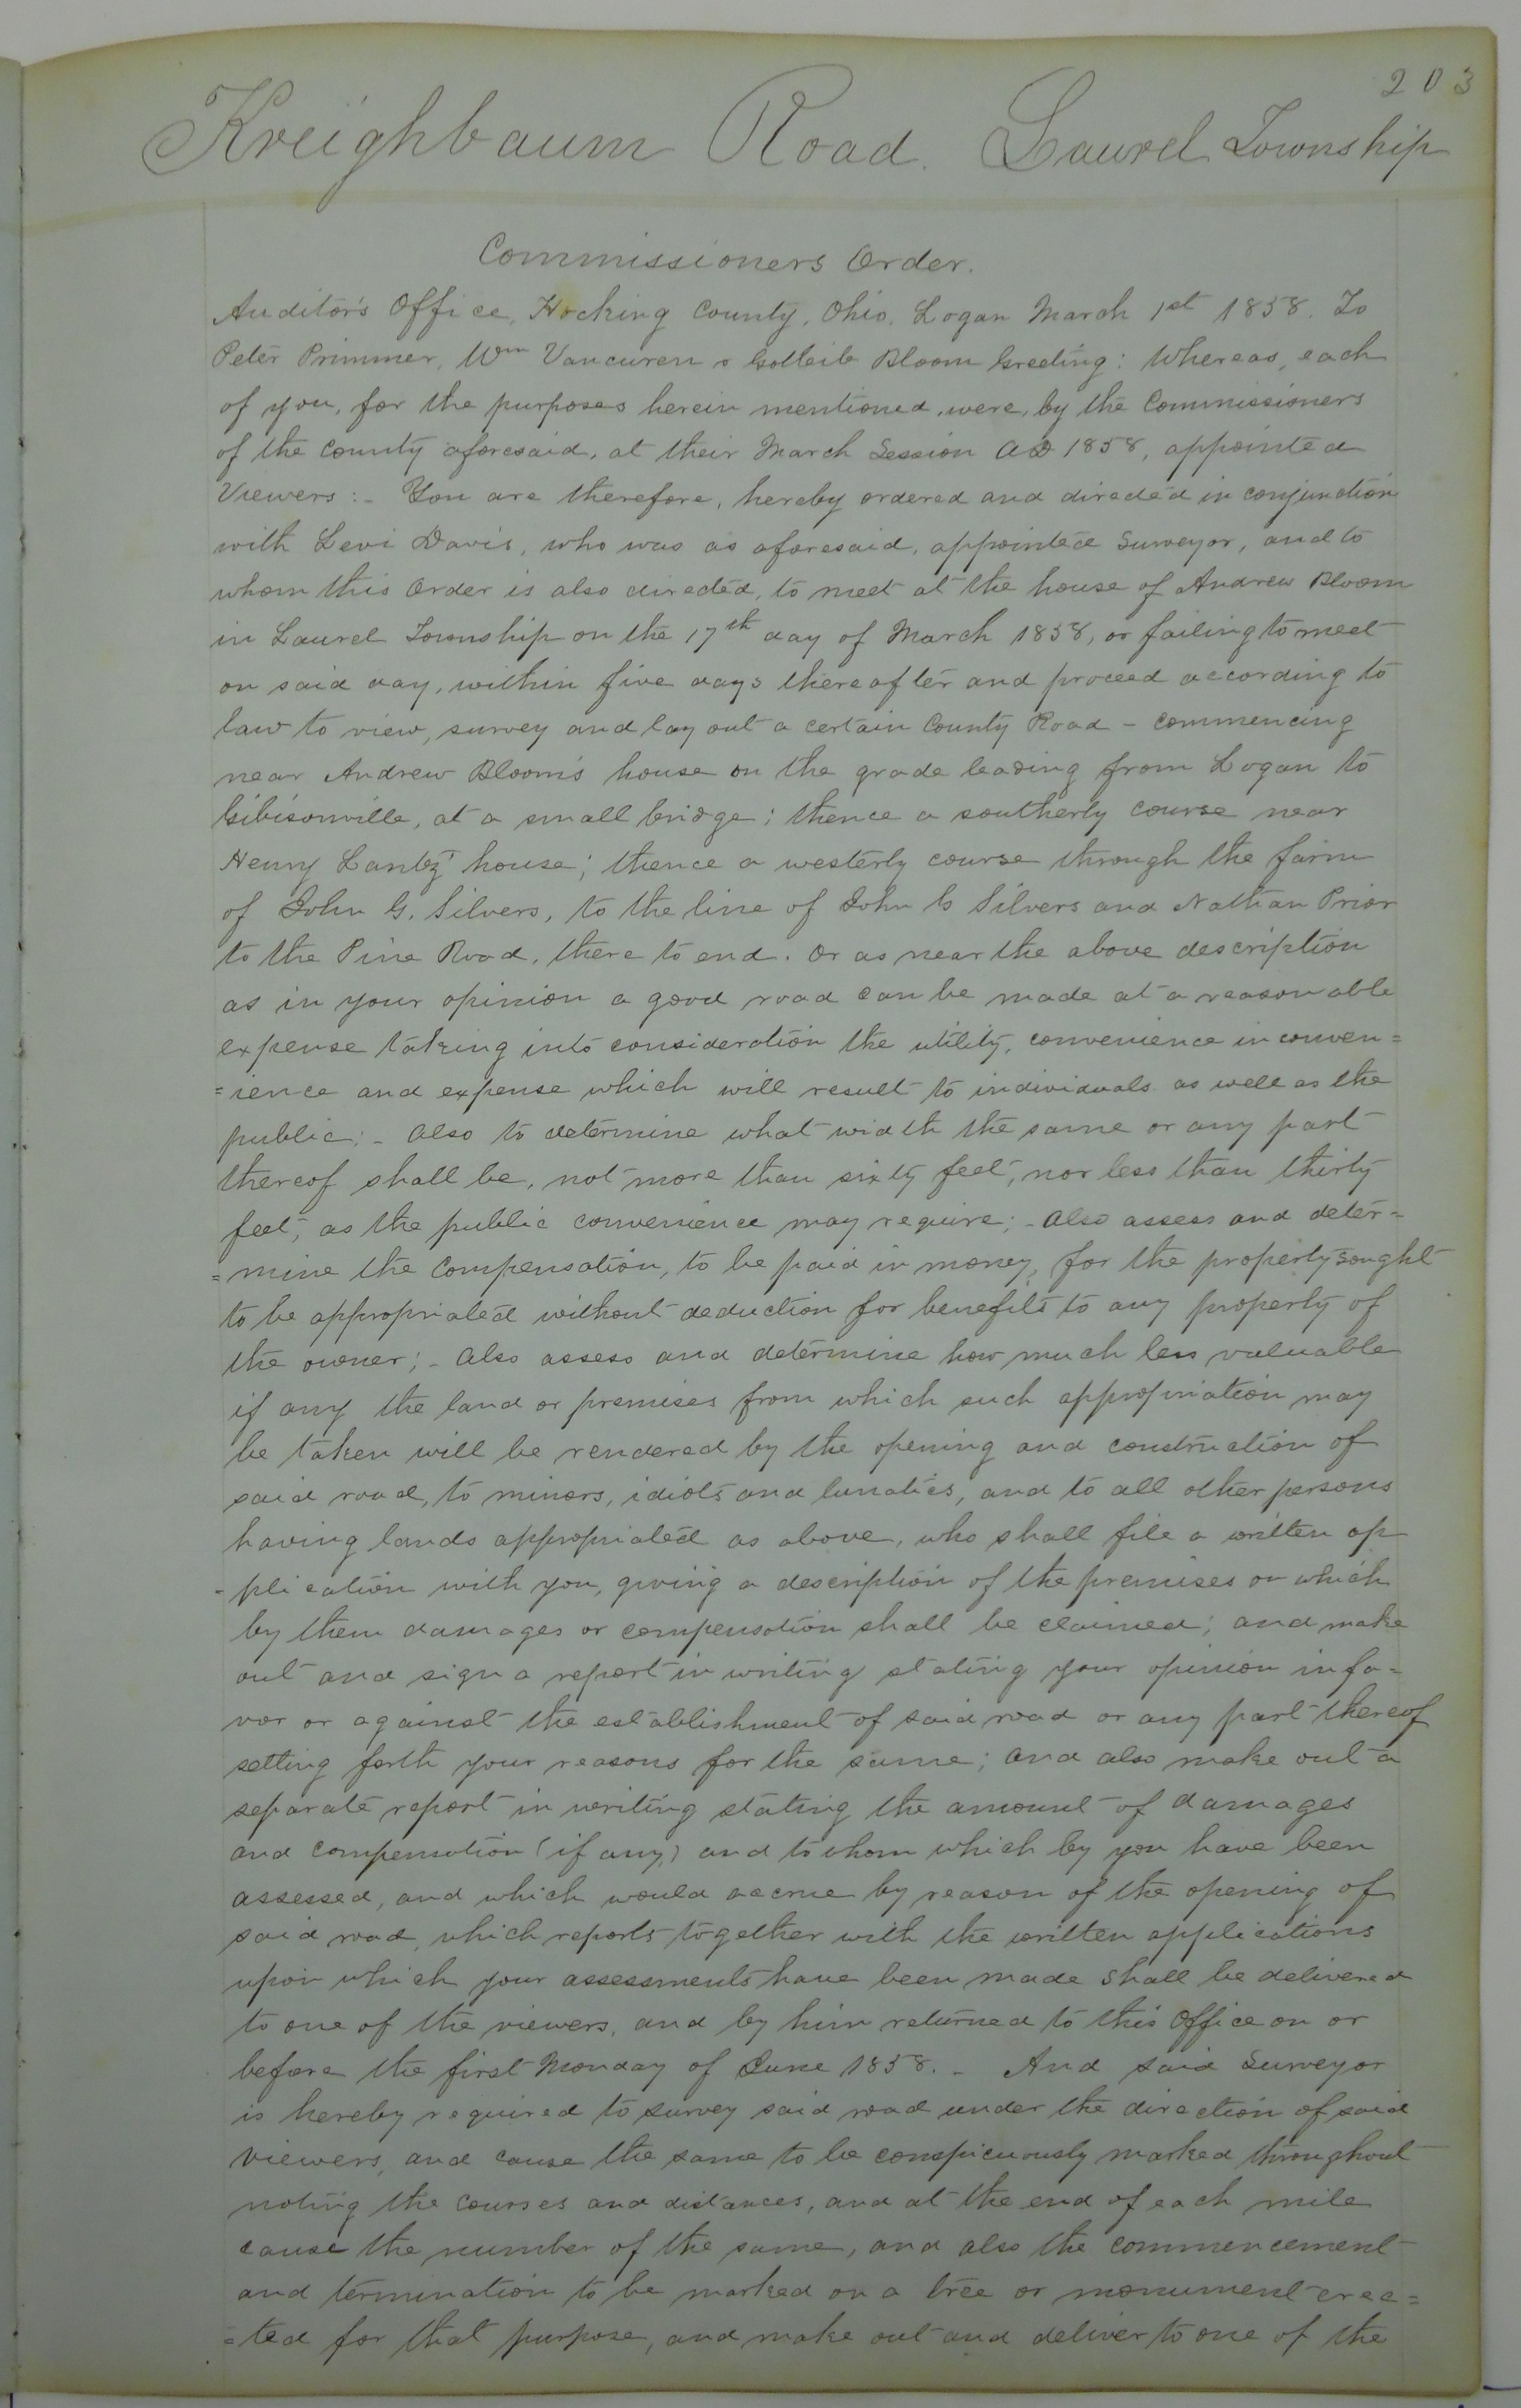 203
Kreighbaum Road. Laurel Township
Commissioners Order.
Auditor's Office, Hocking County, Ohio. Logan March 1st 1858. To
Peter Primmer, Wm Vancuren & Gotleib Bloom Greeting: Whereas, each
of you, for the purposes herein mentioned, were, by the Commissioners
of the County aforesaid, at their March Session AD 1858, appointed
Viewers:- You are therefore, hereby ordered and directed in conjunction
with Levi Davis, who was as aforesaid, appointed Surveyor, and to
whom this Order is also directed, to meet at the house of Andrew Bloom
in Laurel Township on the 17th day of March 1858, or failing to meet
on said day, within five days thereafter and proceed according to
law to view, survey and lay out a certain County Road - commencing
near Andrew Bloom's house on the grade leading from Logan to
Gibisonville, at a small bridge; thence a southerly course near
Henry Lantz' house; thence a westerly course through the farm
of John G. Silvers, to the line of John G Silvers and Nathan Prior
to the Pine Road, there to end. Or as near the above description
as in your opinion a good road can be made at a reasonable
expense taking into consideration the utility, convenience inconven=
=ience and expense which will result to individuals as well as the
public;- Also to determine what width the same or any part
thereof shall be, not more than sixty feet, nor less than thirty
feet, as the public convenience may require;- Also assess and deter=
=mine the compensation, to be paid in money, for the property sought
to be appropriated without deduction for benefits to any property of
the owner;- Also assess and determine how much less valuable
if any the land or premises from which such appropriation may
be taken will be rendered by the opening and construction of
said road, to minors, idiots and lunatics, and to all other persons
having lands appropriated as above, who shall file a written ap
-plication with you, giving a description of the premises on which
by them damages or compensation shall be claimed; and make
out and sign a report in writing stating your opinion in fa=
vor or against the establishment of said road or any part thereof
setting forth your reasons for the same; and also make out a
separate report in writing stating the amount of damages
and compensation (if any) and to whom which by you have been
assessed, and which would accrue by reason of the opening of
said road, which reports together with the written applications
upon which your assessments have been made shall be delivered
to one of the viewers, and by him returned to this Office on or
before the first Monday of June 1858. - And said Surveyor
is hereby required to survey said road under the direction of said
viewers, and cause the same to be conspicuously marked throughout
noting the courses and distances, and at the end of each mile
cause the number of the same, and also the commencement
and termination to be marked on a tree or monument erec=
=ted for that purpose, and make out and deliver to one of the